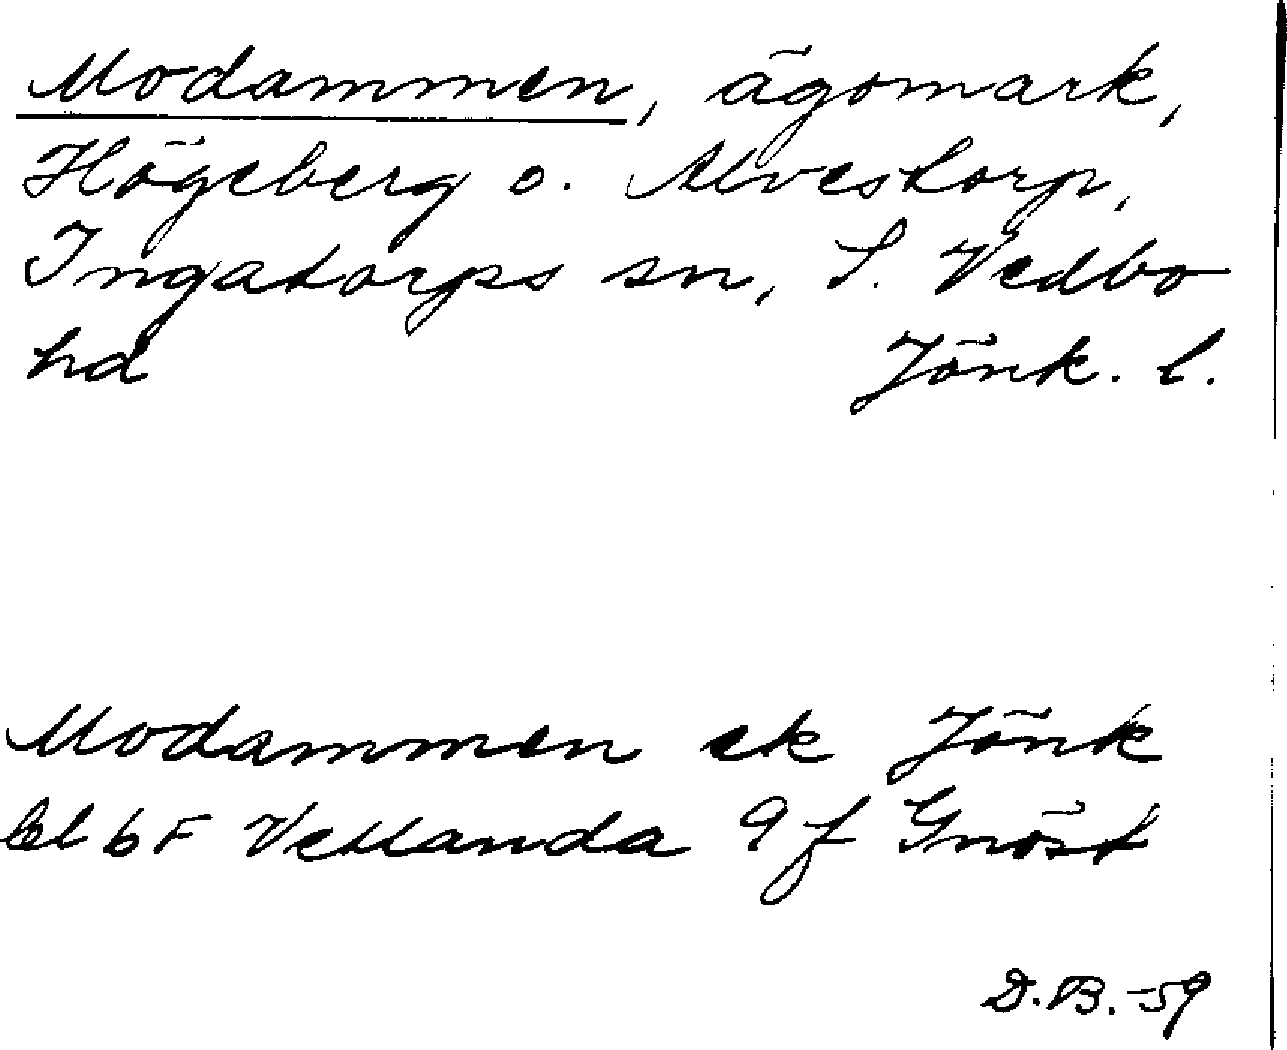 Modammen, ägomark,
Högeberg o. Alvestorp,
Ingatorps sn, S. Vedbo
hd Jönk. l.
Modammen ek Jönk
bl 6F Vetlanda 9 f Gnöst
D.B.-59